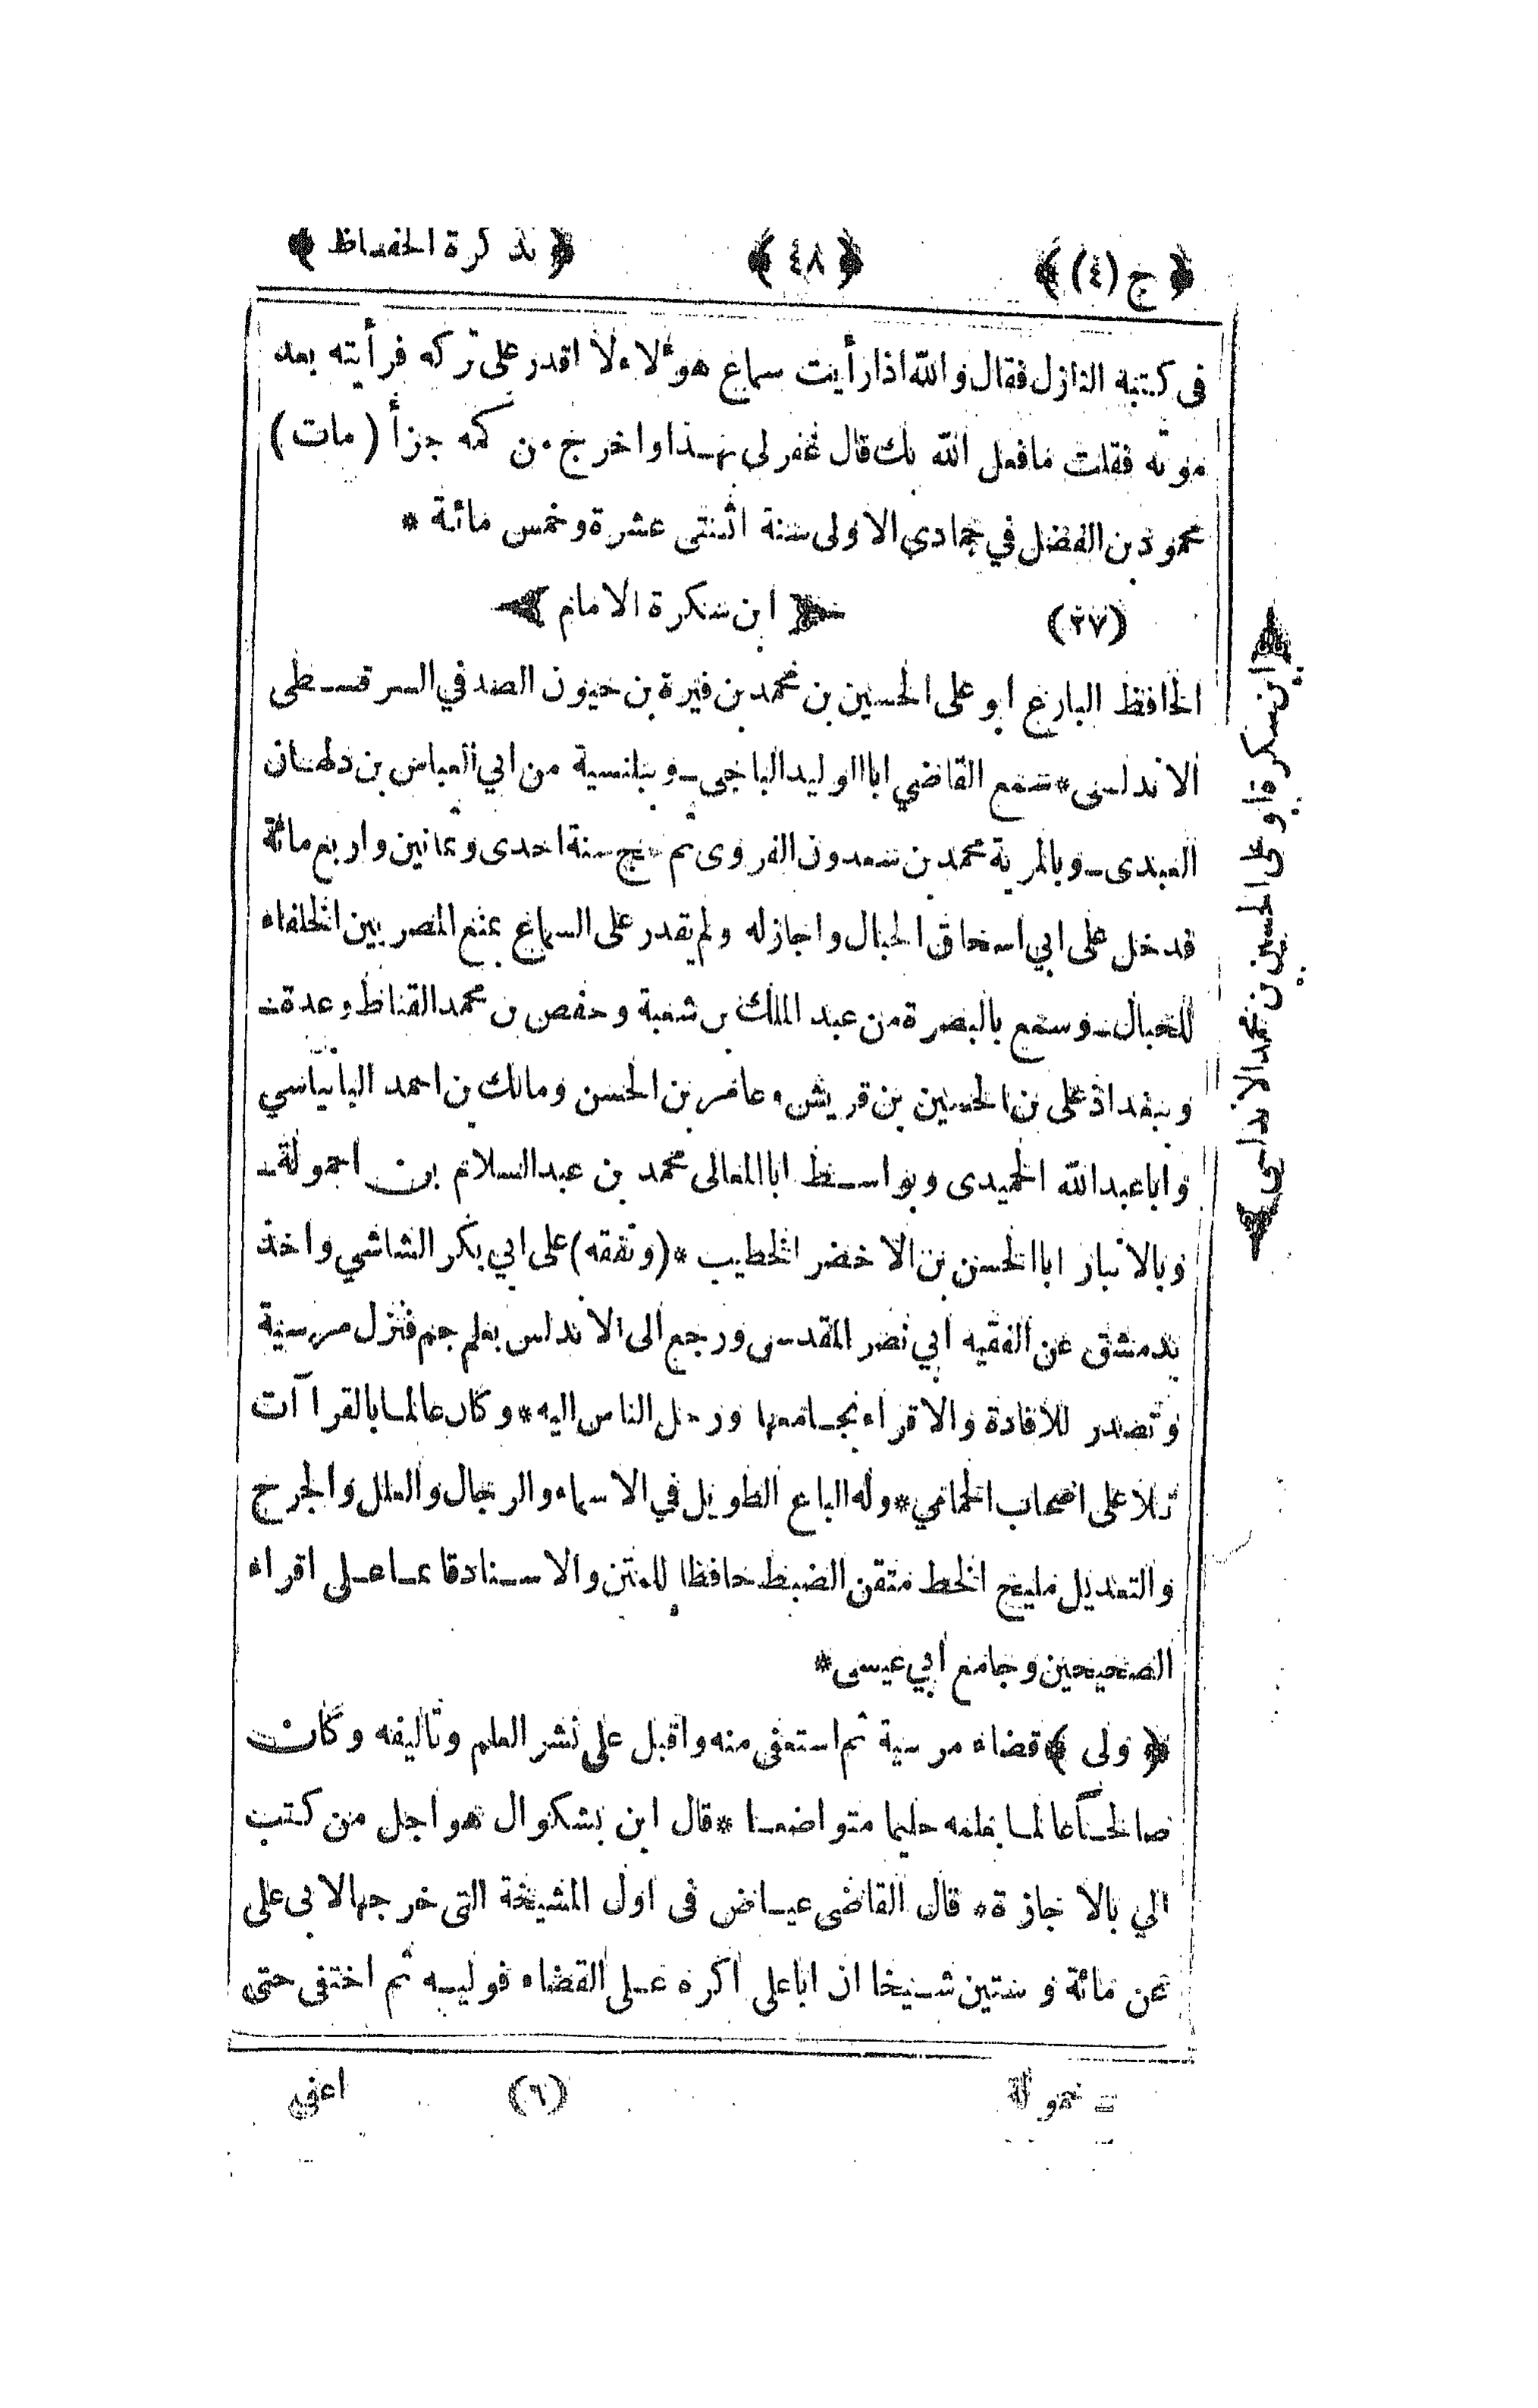 ﴿ ج (٤) ﴾ ﴿ ٤٨ ﴾ ﴿ تذكرة الحفاظ ﴾
فى كتبه النازل فقال والله اذا رأيت سماع هؤلاء لا اقدر على تركه فرأيته بعد
موته فقلت ما فعل الله بك قال غفر لى بهذا واخرج من كمه جزأ ( مات )
محمود بن الفضل في جمادي الاولى سنة اثنتى عشرة وخمس مائة *
(٢٧) ﴿ ابن سكرة الامام ﴾
الحافظ البارع ابو على الحسين بن محمد بن فيرة بن حيون الصدفي السرقسطى
الاندلسى * سمع القاضي ابا الوليد الباجى ـ وببلنسية من ابي العباس بن دلهان
العبدى ـ وبالمرية محمد بن سعدون القروى ثم حج سنة احدى وثمانين واربع مائة
فدخل على ابي اسحاق الحبال واجاز له ولم يقدر على السماع بمنع المصريين الخلفاء
للحبال ـ وسمع بالبصرة من عبد الملك بن شغبة وحفص بن محمد القناظ وعدة ـ
وببغداد على بن الحسين بن قريش وعاصم بن الحسن ومالك بن احمد البانياسي
وابا عبد الله الحميدى وبواسط ابا المعالى محمد بن عبد السلام بن احمولة ـ
وبالانبار ابا الحسن بن الاخضر الخطيب * ( وتفقه ) على ابي بكر الشاشي واخذ
بدمشق عن الفقيه ابي نصر المقدسى ورجع الى الاندلس بعلم جم فنزل مرسية
وتصدر للافادة والاقراء بجامعها ورحل الناس اليه * وكان عالما بالقراآت
تلا على اصحاب الحمامي * وله الباع الطويل في الاسماء والرجال والعلل والجرح
والتعديل مليح الخط متقن الضبط حافظا للمتن والاسناد قائما على اقراء
الصحيحين وجامع ابي عيسى *
﴿ ولى ﴾ قضاء مرسية ثم استعفى منه واقبل على نشر العلم وتاليفه وكان
صالحا عالما بعلمه حليما متواضعا * قال ابن بشكوال هو اجل من كتب
الي بالاجازة * قال القاضى عياض فى اول المشيخة التى خرجها لابى على
عن مائة وستين شيخا ان ابا على اكره على القضاء فوليه ثم اختفى حتى
ـ حمولة (٦) اعفى
ابن سكرة ابو على الحسين بن محمد الاندلسى